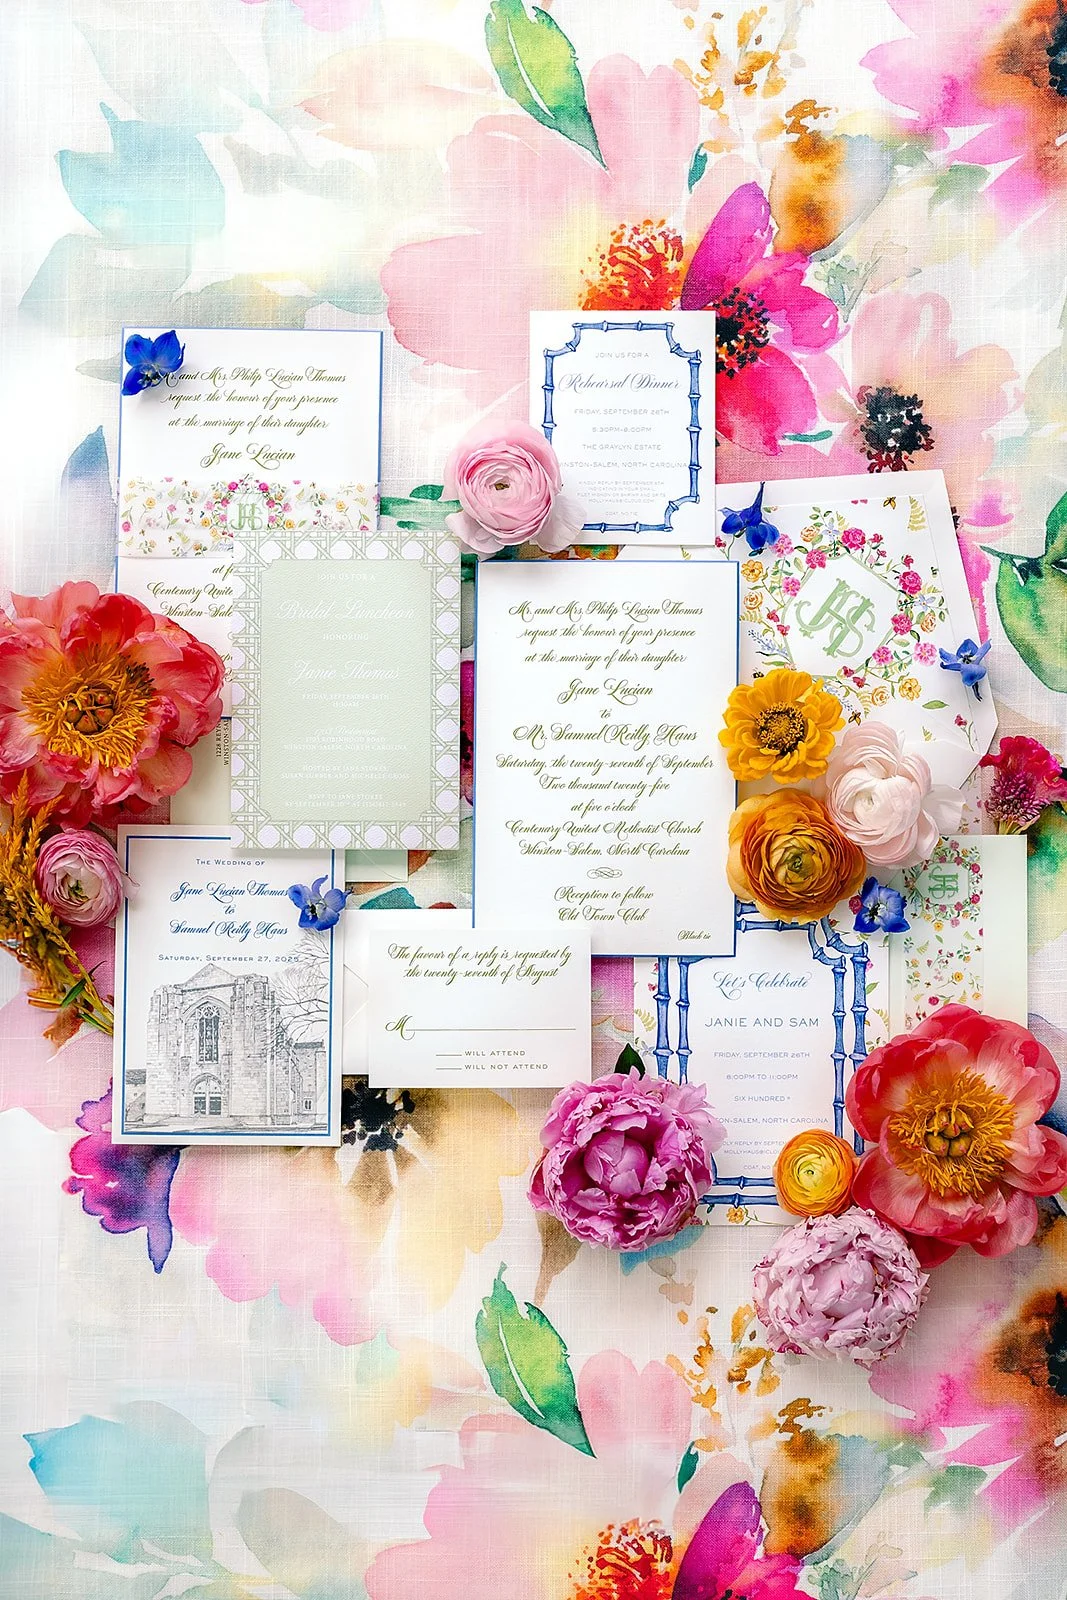 Mr. and Mrs. Philip Lucian Thomas
request the honour of your presence
at the marriage of their daughter
Jane Lucian
JHS
at
Centenary Unite
Winston-Sale
JOIN US FOR A
Rehearsal Dinner
FRIDAY, SEPTEMBER 26TH
5:30PM-8:00PM
THE GRAYLYN ESTATE
WINSTON-SALEM, NORTH CAROLINA
COAT, NO TIE
HONORING
Janie Thomas
FRIDAY, SEPTEMBER 26TH
WINSTON-SALEM, NORTH CAROLINA
Mr. and Mrs. Philip Lucian Thomas
request the honour of your presence
at the marriage of their daughter
Jane Lucian
to
Mr. Samuel Reilly Haus
Saturday, the twenty-seventh of September
Two thousand twenty-five
at five o'clock
Centenary United Methodist Church
Winston-Salem, North Carolina
Reception to follow
Old Town Club
Black tie
JHS
1228 REYN
WINSTON-SA
THE WEDDING OF
Jane Lucian Thomas
to
Samuel Reilly Haus
SATURDAY, SEPTEMBER 27, 2025
The favour of a reply is requested by
the twenty-seventh of August
M
WILL ATTEND
WILL NOT ATTEND
JHS
Let's Celebrate
JANIE AND SAM
FRIDAY, SEPTEMBER 26TH
8:00PM TO 11:00PM
SIX HUNDRED °
TON-SALEM, NORTH CAROLINA
MOLLYHAUS@ICLOUD.COM
COAT, NO